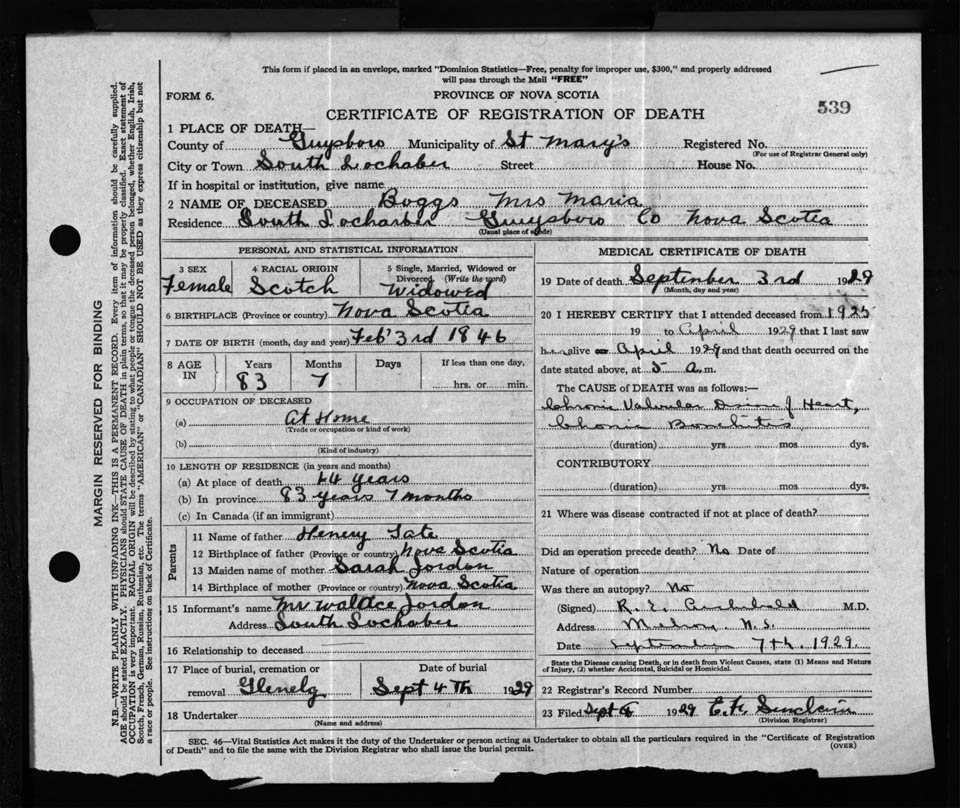 This form if placed in an envelope, marked "Dominion Statistics—Free, penalty for improper use, $300," and properly addressed
will pass through the Mail "FREE"
FORM 6.
PROVINCE OF NOVA SCOTIA
539
CERTIFICATE OF REGISTRATION OF DEATH
1 PLACE OF DEATH—
County of Guysboro Municipality of St Mary's Registered No.
(For use of Registrar General only)
City or Town South Lochaber Street House No.
If in hospital or institution, give name
2 NAME OF DECEASED Boggs Mrs Maria
Residence South Locharber Guysboro Co Nova Scotia
(Usual place of abode)
PERSONAL AND STATISTICAL INFORMATION
3 SEX
Female
4 RACIAL ORIGIN
Scotch
5 Single, Married, Widowed or
Divorced (Write the word)
Widowed
6 BIRTHPLACE (Province or country) Nova Scotia
7 DATE OF BIRTH (month, day and year) Feb' 3rd 1846
8 AGE
IN
Years
83
Months
7
Days
If less than one day,
hrs. or min.
9 OCCUPATION OF DECEASED
(a) At Home
(Trade or occupation or kind of work)
(b)
(Kind of industry)
10 LENGTH OF RESIDENCE (in years and months)
(a) At place of death years
(b) In province 83 years 7 months
(c) In Canada (if an immigrant)
Parents
11 Name of father Henery Tate
12 Birthplace of father (Province or country) Nova Scotia
13 Maiden name of mother Sarah Jordon
14 Birthplace of mother (Province or country) Nova Scotia
15 Informant's name Mr Wallace Jordon
Address South Lochaber
16 Relationship to deceased
17 Place of burial, cremation or
removal Glenelg
Date of burial
Sept 4th 1929
18 Undertaker
(Name and address)
MEDICAL CERTIFICATE OF DEATH
19 Date of death September 3rd 1929
(Month, day and year)
20 I HEREBY CERTIFY that I attended deceased from 1925
19 to April 1929 that I last saw
her alive on April 1929 and that death occurred on the
date stated above, at 5 a.m.
The CAUSE of DEATH was as follows:—
Chronic Valvular Disease of Heart,
Chronic Bronchitis
(duration) yrs mos dys.
CONTRIBUTORY
(duration) yrs mos dys.
21 Where was disease contracted if not at place of death?
Did an operation precede death? No Date of
Nature of operation
Was there an autopsy? No
(Signed) R. E. Archibald M.D.
Address N.S.
Date September 7th. 1929.
State the Disease causing Death, or in death from Violent Causes, state (1) Means and Nature
of Injury, (2) whether Accidental, Suicidal or Homicidal.
22 Registrar's Record Number
23 Filed Sept 1929 Sinclair
(Division Registrar)
SEC. 46—Vital Statistics Act makes it the duty of the Undertaker or person acting as Undertaker to obtain all the particulars required in the "Certificate of Registration
of Death" and to file the same with the Division Registrar who shall issue the burial permit.
(OVER)
MARGIN RESERVED FOR BINDING
N.B.—WRITE PLAINLY WITH UNFADING INK—THIS IS A PERMANENT RECORD. Every item of information should be carefully supplied.
AGE should be stated EXACTLY. PHYSICIANS should STATE CAUSE OF DEATH in plain terms, so that it may be properly classified. Exact statement of
OCCUPATION is very important. RACIAL ORIGIN will be described by stating to what people or tongue the deceased person belonged, whether English, Irish,
Scotch, French, German, Russian, Ruthenian, etc. The terms "AMERICAN" or "CANADIAN" SHOULD NOT BE USED as they express citizenship but not
a race or people. See instructions on back of Certificate.